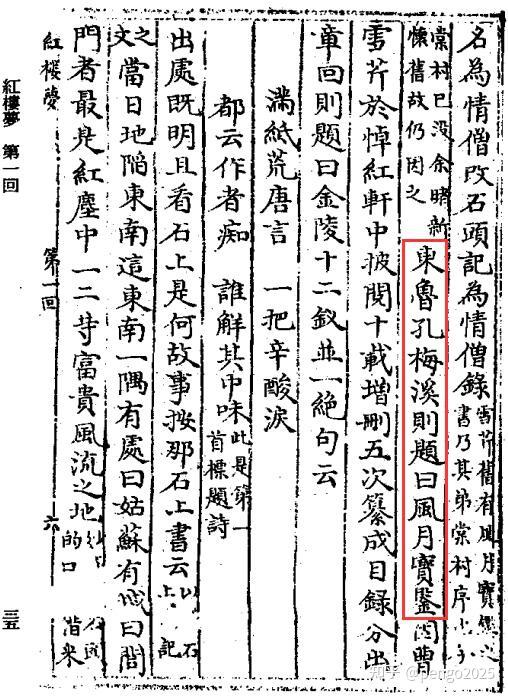 名為情僧改石頭記為情僧錄
雪芹舊有風月寶鑑之
書乃其弟棠村序也今
棠村已沒余睹新
懷舊故仍因之
東魯孔梅溪則題曰風月寶鑒因曹
雪芹於悼紅軒中披閱十載增刪五次纂成目錄分出
章回則題曰金陵十二釵並一絕句云
滿紙荒唐言 一把辛酸淚
都云作者痴 誰解其中味
此是第一
首標題詩
出處既明且看石上是何故事按那石上書云
以上
石記
之文
當日地陷東南這東南一隅有處曰姑蘇有城曰閶
門者最是紅塵中一二等富貴風流之地
紅樓夢 第一回 六
紅樓夢 第一回 三五
知乎 @pengo2025